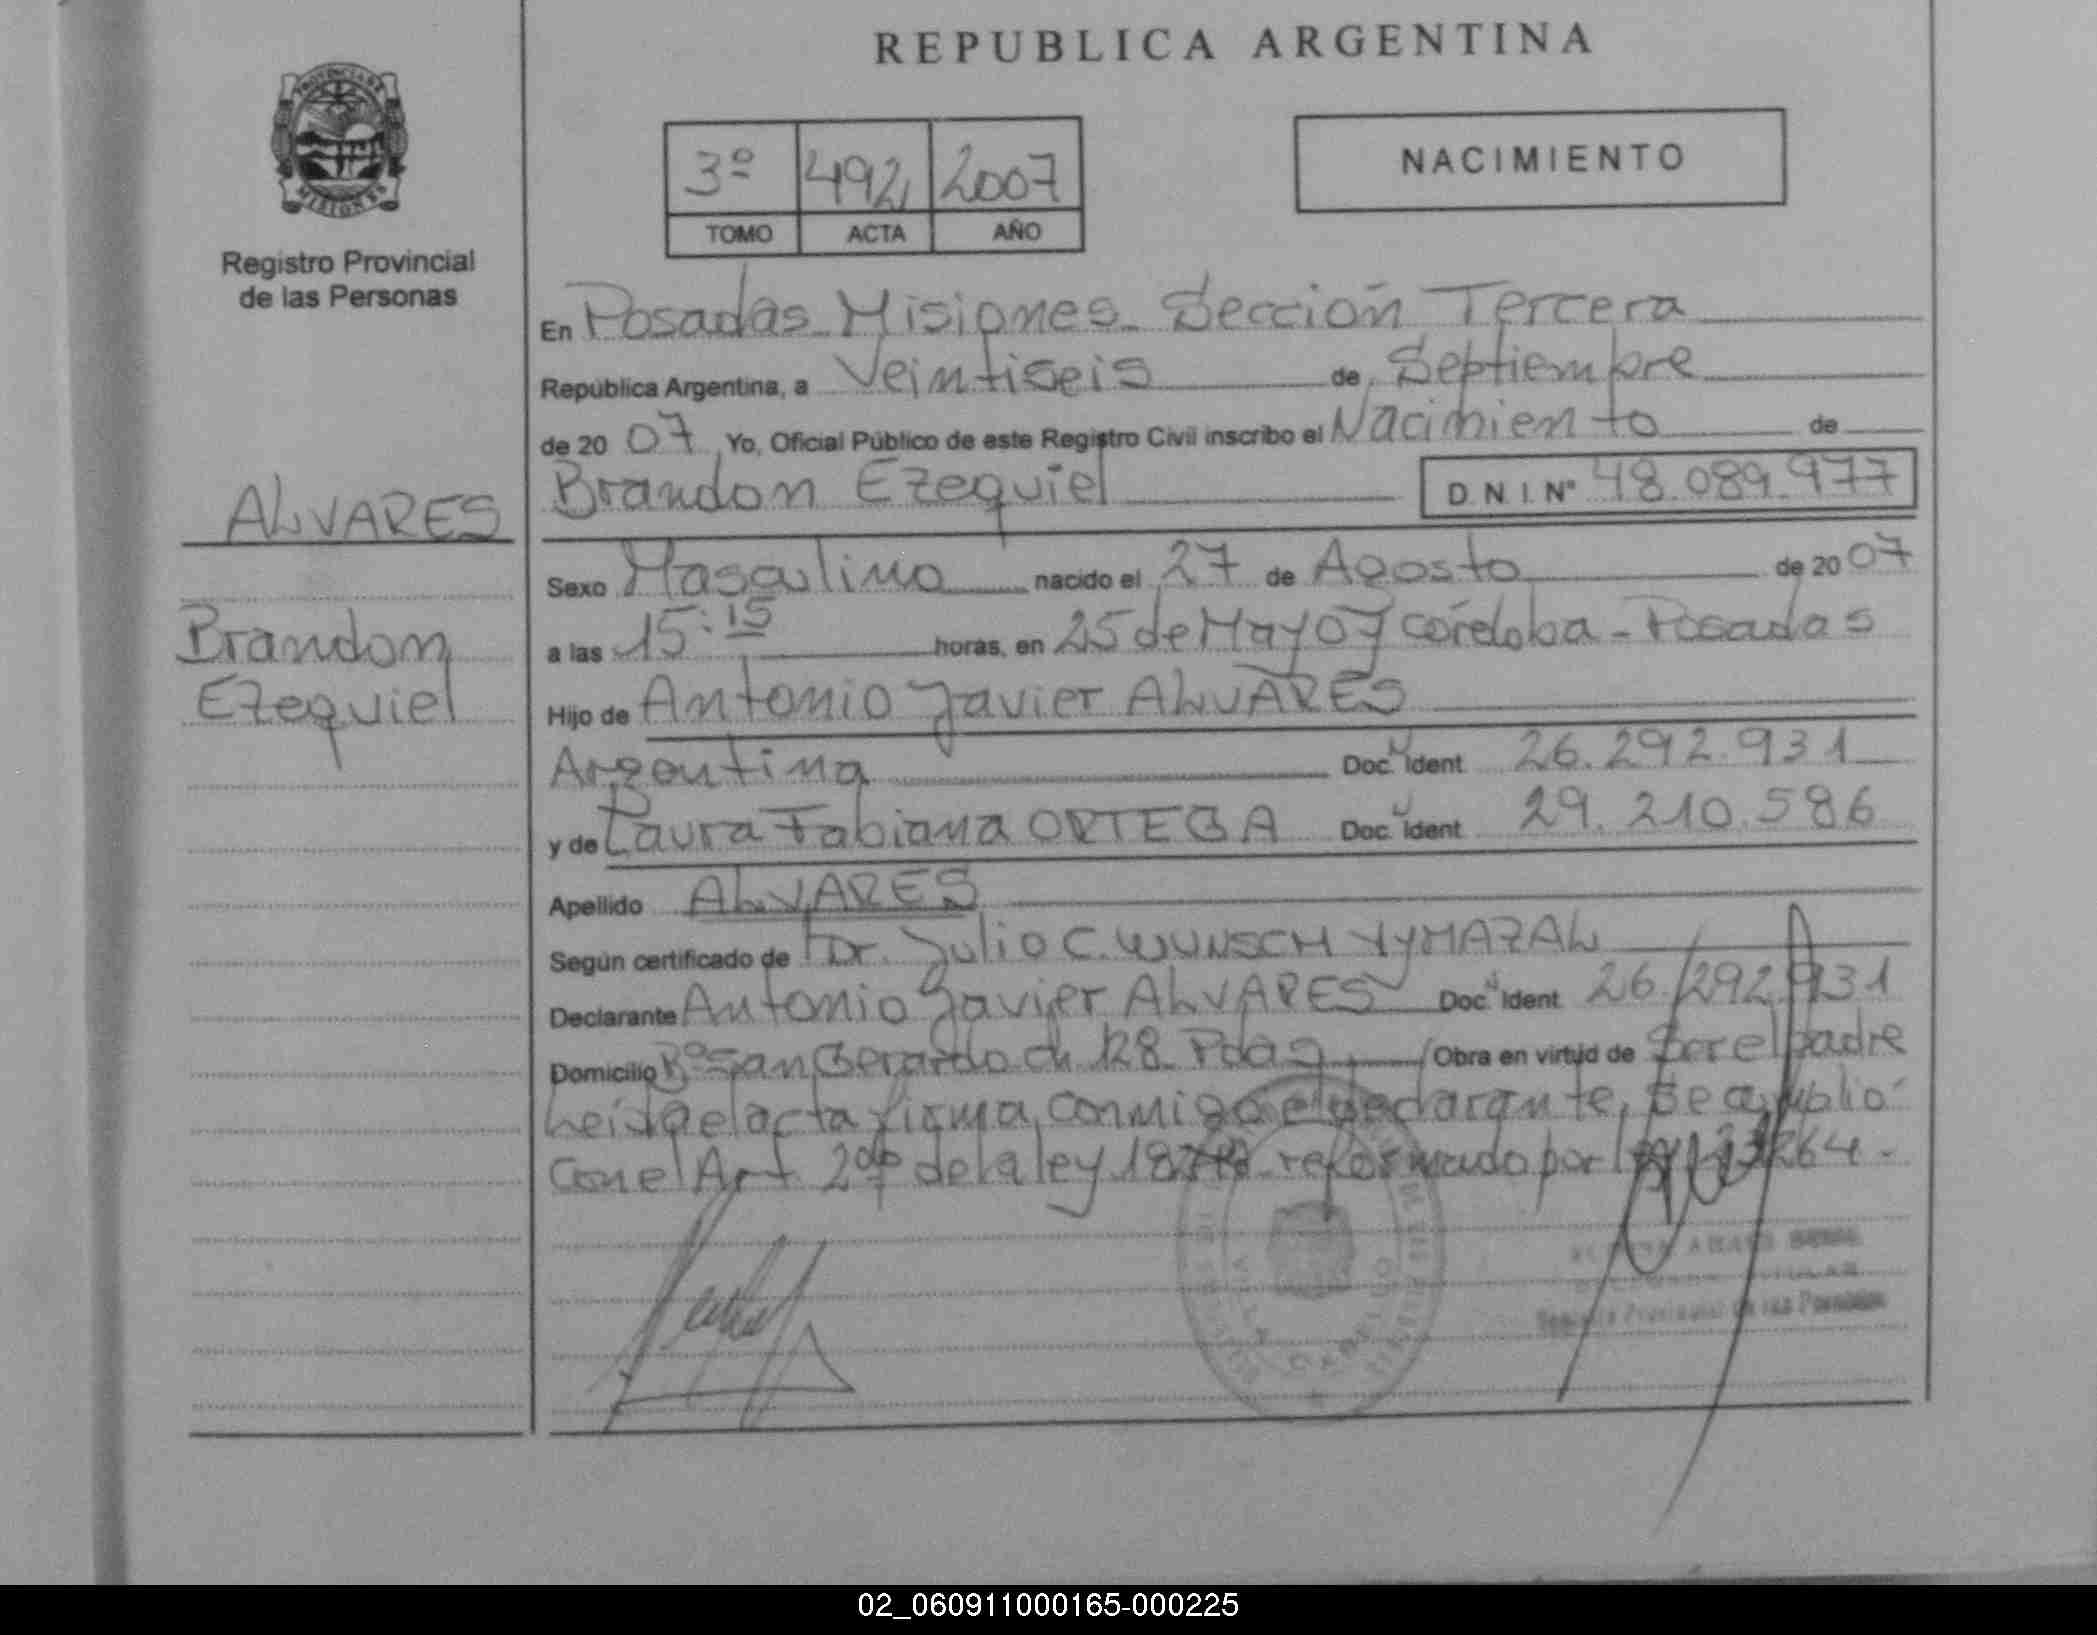 REPUBLICA ARGENTINA
PROVINCIA DE
MISIONES
Registro Provincial
de las Personas
3º 492 2007
TOMO ACTA AÑO
NACIMIENTO
En Posadas Misiones Sección Tercera
República Argentina, a Veintiseis de Septiembre
de 20 07 Yo, Oficial Público de este Registro Civil inscribo el Nacimiento de
Brandon Ezequiel D.N.I.Nº 48.089.977
ALVARES
Brandon
Ezequiel
Sexo Masculino nacido el 27 de Agosto de 20 07
a las 15:15 horas, en 25 de Mayo y córdoba - Posadas
Hijo de Antonio Javier ALVARES
Argentina Doc. Ident 26.292.931
y de Laura Fabiana ORTEGA Doc. Ident 29.210.586
Apellido ALVARES
Según certificado de Dr. Julio C. WUNSCH VYMAZAL
Declarante Antonio Javier ALVARES Doc. Ident 26.292.931
Domicilio Bº San Gerardo ch 128 Pdas Obra en virtud de Ser el padre
Leída el acta firma conmigo el declarante, Se cumplió
Con el Art 2º de la ley reformado por ley 23264-
Registro Provincial de las Personas
02_060911000165-000225